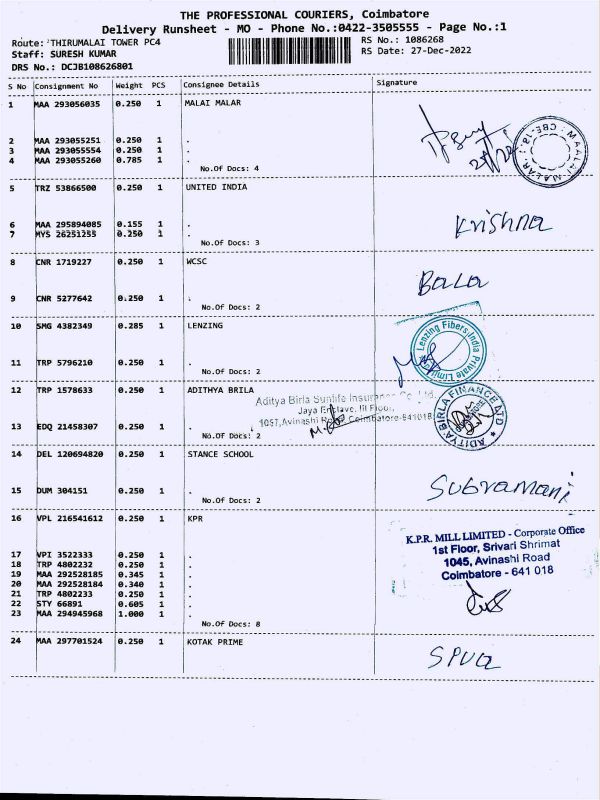 THE PROFESSIONAL COURIERS, Coimbatore
Delivery Runsheet - MO - Phone No.:0422-3505555 - Page No.:1
Route: THIRUMALAI TOWER PC4
RS No.: 1086268
Staff: SURESH KUMAR
RS Date: 27-Dec-2022
DRS No.: DCJB108626801
S No Consignment No Weight PCS Consignee Details Signature
1 MAA 293056035 0.250 1 MALAI MALAR
2 MAA 293055251 0.250 1 .
3 MAA 293055554 0.250 1 .
4 MAA 293055260 0.785 1 .
No.Of Docs: 4
5 TRZ 53866500 0.250 1 UNITED INDIA
Krishna
6 MAA 295894085 0.155 1 .
7 MYS 26251255 0.250 1 .
No.Of Docs: 3
8 CNR 1719227 0.250 1 WCSC
Bala
9 CNR 5277642 0.250 1 .
No.Of Docs: 2
10 SMG 4382349 0.285 1 LENZING
Lenzing Fibers India Private Limited
11 TRP 5796210 0.250 1 .
No.Of Docs: 2
12 TRP 1578633 0.250 1 ADITHYA BRILA
Aditya Birla Sunlife Insurance Co. Ltd.
Jaya Enclave, III Floor,
1057, Avinashi Road, Coimbatore-641018
ADITYA BIRLA FINANCE LTD
13 EDQ 21458307 0.250 1 .
No.Of Docs: 2
14 DEL 120694820 0.250 1 STANCE SCHOOL
Subramani
15 DUM 304151 0.250 1 .
No.Of Docs: 2
16 VPL 216541612 0.250 1 KPR
K.P.R. MILL LIMITED - Corporate Office
1st Floor, Srivari Shrimat
1045, Avinashi Road
Coimbatore - 641 018
17 VPI 3522333 0.250 1 .
18 TRP 4802232 0.250 1 .
19 MAA 292528185 0.345 1 .
20 MAA 292528184 0.340 1 .
21 TRP 4802233 0.250 1 .
22 STY 66891 0.605 1 .
23 MAA 294945968 1.000 1 .
No.Of Docs: 8
24 MAA 297701524 0.250 1 KOTAK PRIME